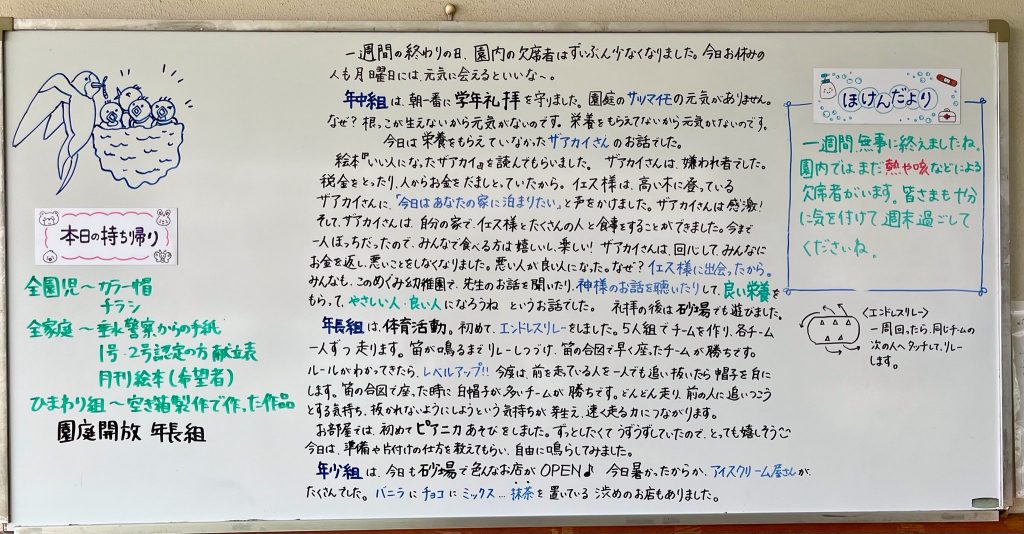 一週間の終わりの日、園内の欠席者はずいぶん少なくなりました。今日お休みの
人も月曜日には、元気に会えるといいな〜。
年中組は、朝一番に学年礼拝を守りました。園庭のサツマイモの元気がありません。
なぜ？根っこが生えないから元気がないのです。栄養をもらえてないから元気がないのです。
今日は栄養をもらえていなかったザアカイさんのお話でした。
絵本『いい人になったザアカイ』を読んでもらいました。ザアカイさんは、嫌われ者でした。
税金をとったり、人からお金をだましとっていたから。イエス様は、高い木に登っている
ザアカイさんに、「今日はあなたの家に泊まりたい」と声をかけました。ザアカイさんは感激！
そして、ザアカイさんは、自分の家で、イエス様とたくさんの人と食事をすることができました。今まで
一人ぼっちだったので、みんなで食べる方は嬉しいし、楽しい！ザアカイさんは、回心して、みんなに
お金を返し、悪いことをしなくなりました。悪い人が良い人になった。なぜ？イエス様に出会ったから。
みんなも、このめぐみ幼稚園で、先生のお話を聞いたり、神様のお話を聴いたりして、良い栄養を
もらって、やさしい人・良い人になろうね というお話でした。礼拝の後は砂場でも遊びました。
年長組は、体育活動。初めて、エンドレスリレーをしました。5人組でチームを作り、各チーム
一人ずつ走ります。笛が鳴るまでリレーしつづけ、笛の合図で早く座ったチームが勝ちです。
ルールがわかってきたら、レベルアップ!!今度は、前を走っている人を一人でも追い抜いたら帽子を白に
します。笛の合図で座った時に白帽子が多いチームが勝ちです。どんどん走り、前の人に追いつこう
とする気持ち、抜かれないようにしようという気持ちが芽生え、速く走る力につながります。
お部屋では、初めてピアニカあそびをしました。ずっとしたくてうずうずしていたので、とっても嬉しそう
今日は、準備や片付けの仕方を教えてもらい、自由に鳴らしてみました。
年少組は、今日も砂場で色んなお店がOPEN♪ 今日暑かったからか、アイスクリーム屋さんが、
たくさんでした。バニラにチョコにミックス…抹茶を置いている渋めのお店もありました。
本日の持ち帰り
全園児〜カラー帽
チラシ
全家庭〜垂水警察からの手紙
1号・2号認定の方献立表
月刊絵本(希望者)
ひまわり組〜空き箱製作で作った作品
園庭開放 年長組
ほけんだより
一週間、無事に終えましたね。
園内ではまだ熱や咳などによる
欠席者がいます。皆さまも十分
に気を付けて週末過ごして
くださいね。
<エンドレスリレー>
一周回ったら、同じチームの
次の人へタッチして、リレー
します。